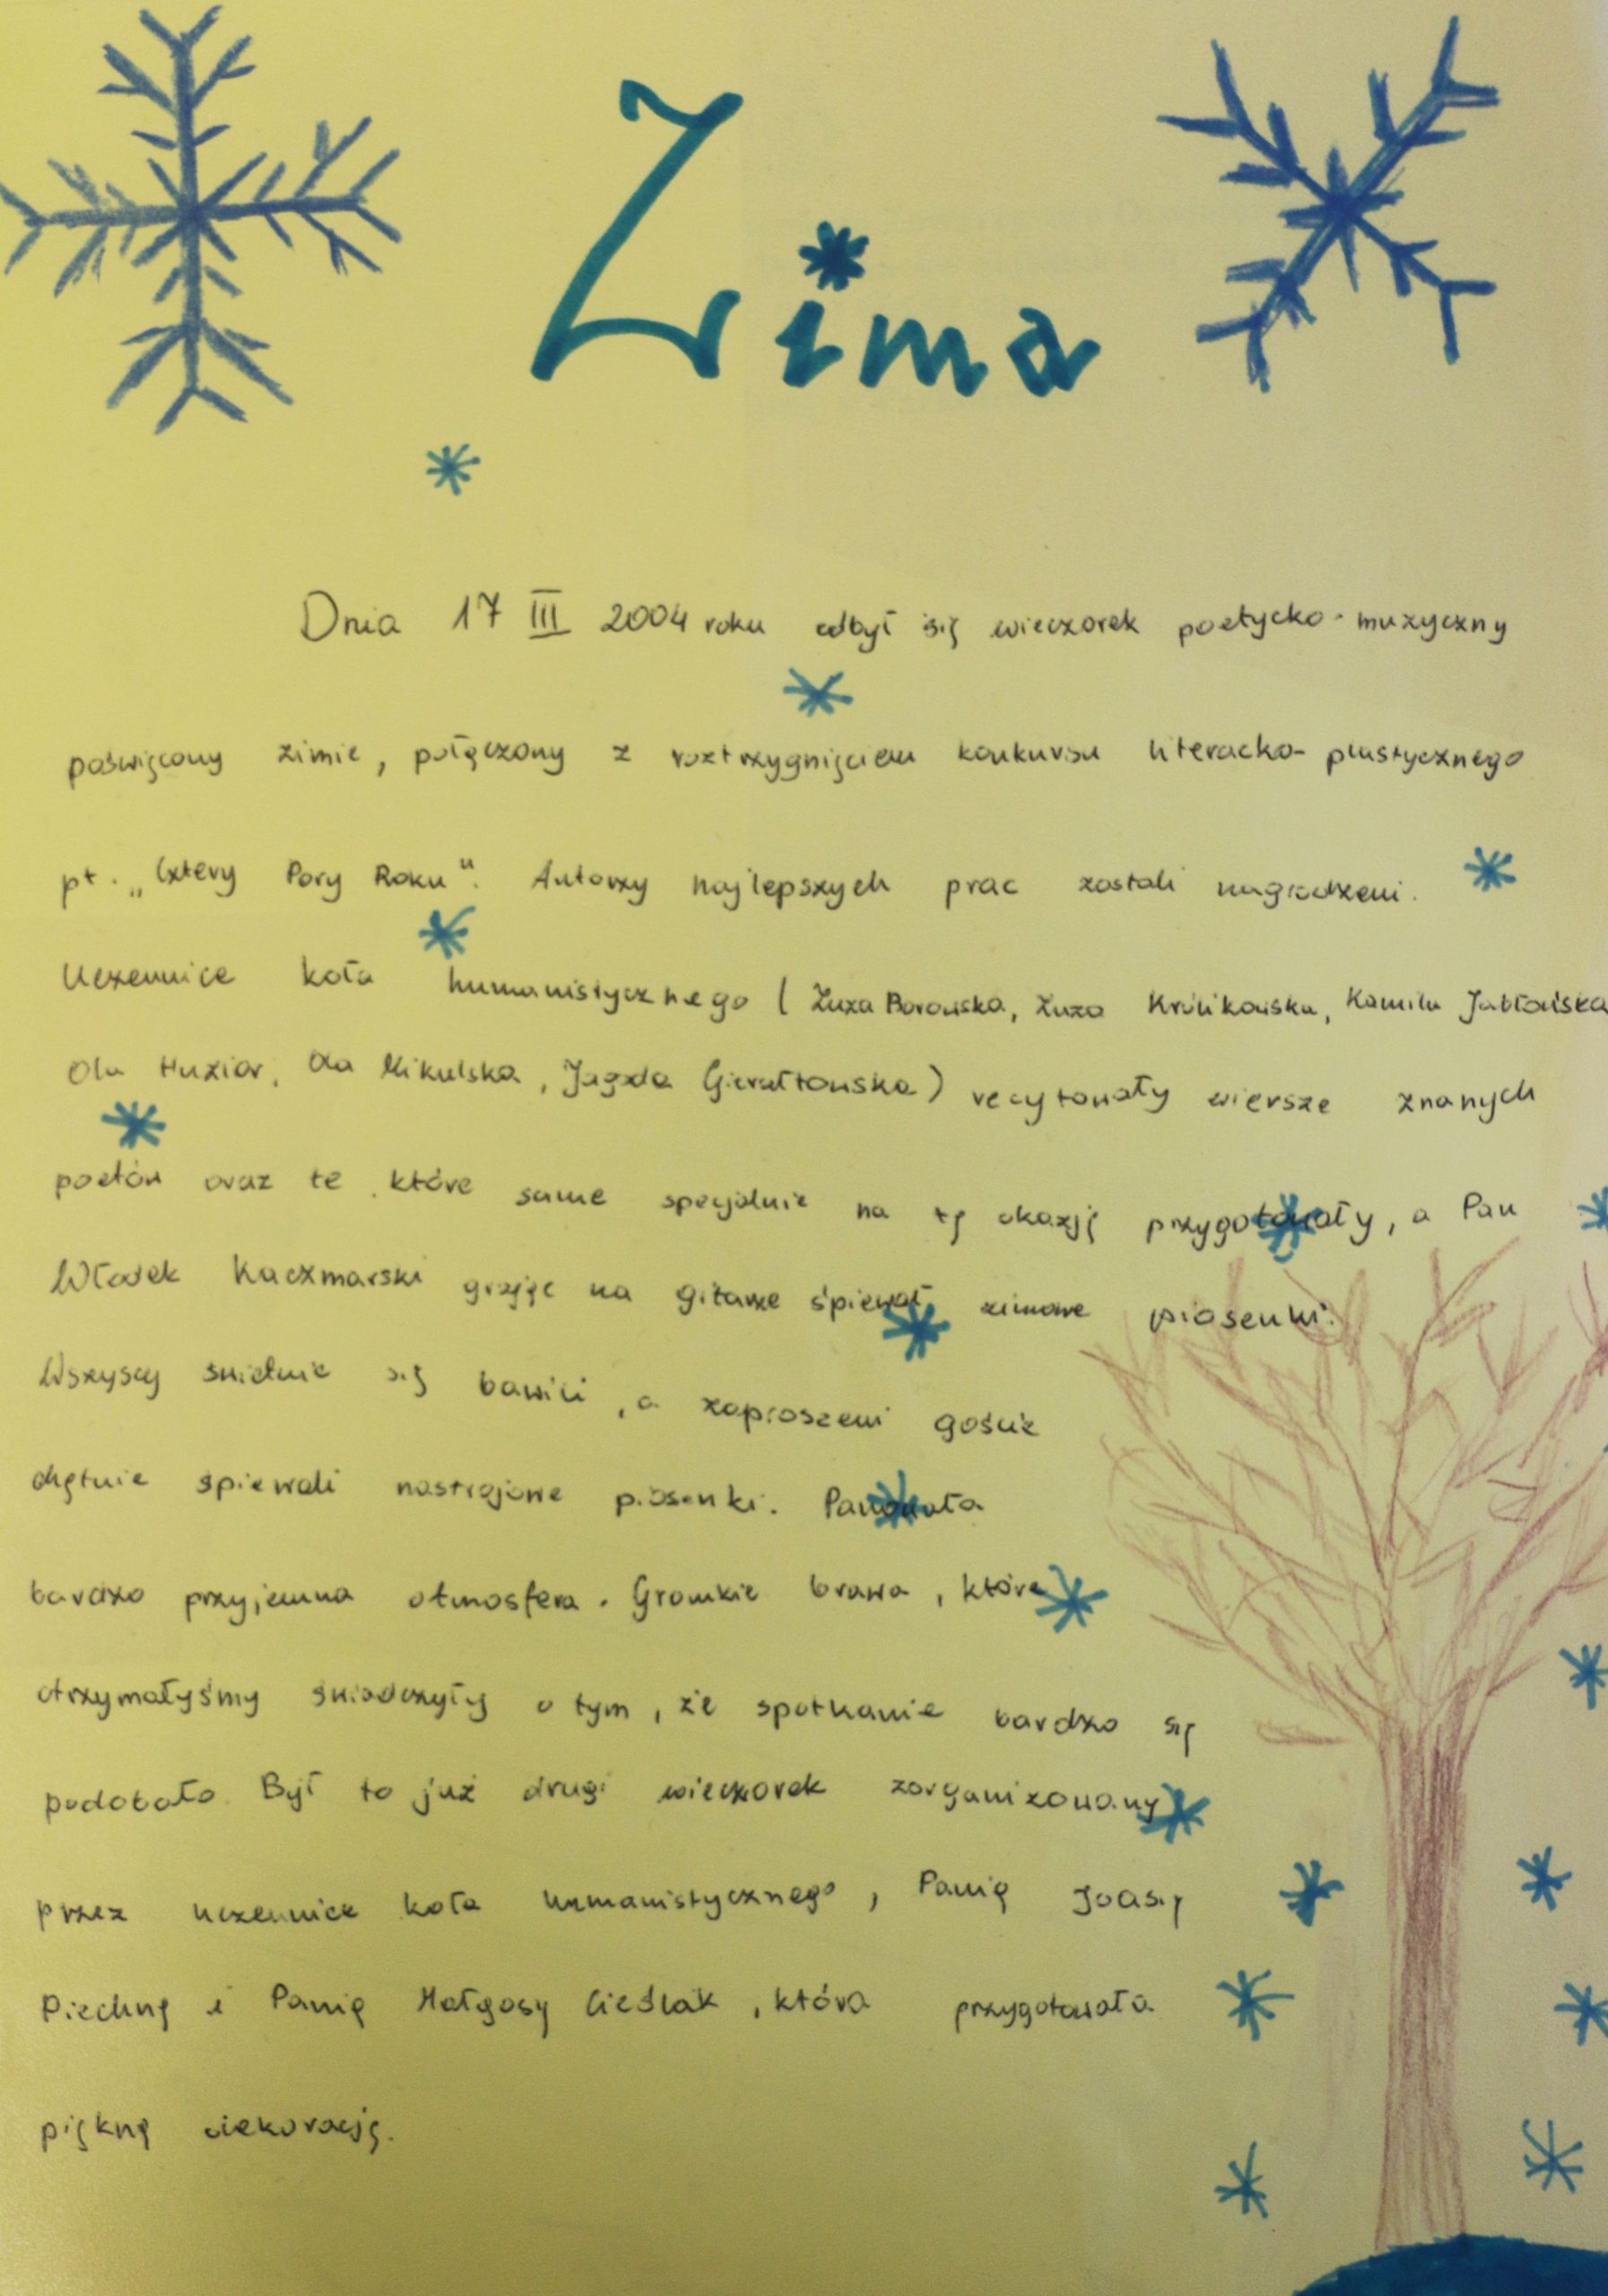 Zima
Dnia 17 III 2004 roku odbył się wieczorek poetycko-muzyczny
poświęcony zimie, połączony z roztrzygnięciem konkursu literacko-plastycznego
pt. „Cztery Pory Roku". Autorzy najlepszych prac zostali nagrodzeni.
Uczennice koła humanistycznego (Zuza Borowska, Zuza Królikowska, Kamila Jabłońska
Ola Huziar, Ola Mikulska, Jagoda Gierałtowska) recytowały wiersze znanych
poetów oraz te które same specjalnie na tę okazję przygotowały, a Pan
Włodek Kaczmarski grając na gitarze śpiewał zimowe piosenki.
Wszyscy świetnie się bawili, a zaproszeni goście
chętnie śpiewali nastrojowe piosenki. Panowała
bardzo przyjemna atmosfera. Gromkie brawa, które
otrzymałyśmy świadczyły o tym, że spotkanie bardzo się
podobało. Był to już drugi wieczorek zorganizowany
przez uczennice koła humanistycznego, Panią Joasię
Piechnę i Panią Małgosy Cieślak, która przygotowała
piękną dekorację.